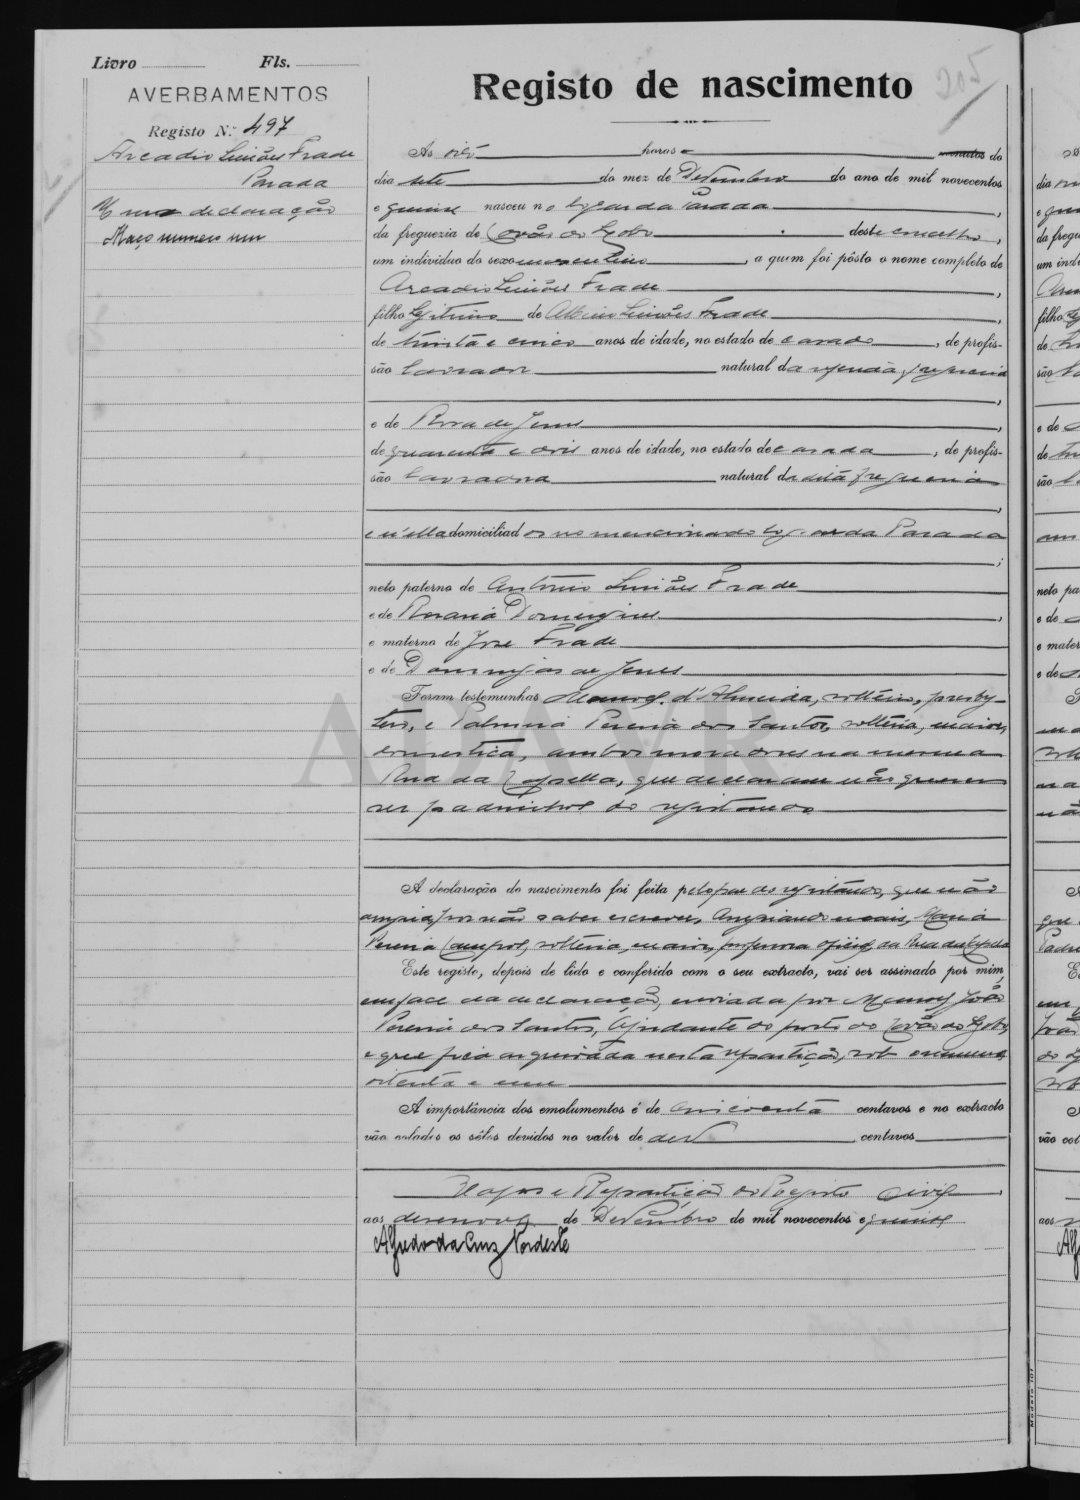 Livro Fls.
AVERBAMENTOS
Registo N.º 497
Arcadio Simões Frade
Parada
Uma declaração
Maço numero um
205
Registo de nascimento
Às oito horas e minutos do
dia sete do mez de Dezembro do ano de mil novecentos
e quinze nasceu no logar da Parada,
da freguezia de Covão do Lobo deste concelho,
um indivíduo do sexo masculino, a quem foi pôsto o nome completo de
Arcadio Simões Frade,
filho legitimo de Albino Simões Frade,
de trinta e cinco anos de idade, no estado de casado, de profis-
são lavrador natural da referida freguesia,
e de Rosa de Jesus,
de quarenta e dois anos de idade, no estado de casada, de profis-
são lavradora natural da dita freguesia,
e n'ella domiciliados no mencionado logar da Parada;
neto paterno de Antonio Simões Frade
e de Rosaria Domingues,
e materno de José Frade
e de Domingas de Jesus
Foram testemunhas Manoel d'Almeida, solteiro, presby-
tero, e Palmira Pereira dos Santos, solteira, maior,
domestica, ambos moradores na mesma
Rua da Capella, que declararam não querem
ser padrinhos do registando
A declaração do nascimento foi feita pelo pae do registando, que não
assigna, por não saber escrever, assignando mais, Maria
Pereira Campos, solteira, maior, professora official, da Rua da Capela
Este registo, depois de lido e conferido com o seu extracto, vai ser assinado por mim,
em face da declaração, enviada por Manoel João
Pereira dos Santos, Ajudante do posto do Covão do Lobo,
e que fica arquivada nesta repartição, sob o numero
oitenta e um
A importância dos emolumentos é de cincoenta centavos e no extracto
vão colados os sêlos devidos no valor de dez centavos
Vagos e Repartição do Registo Civil,
aos dezenove de Dezembro de mil novecentos e quinze
Alfredo da Cruz Nordeste
Modelo 101